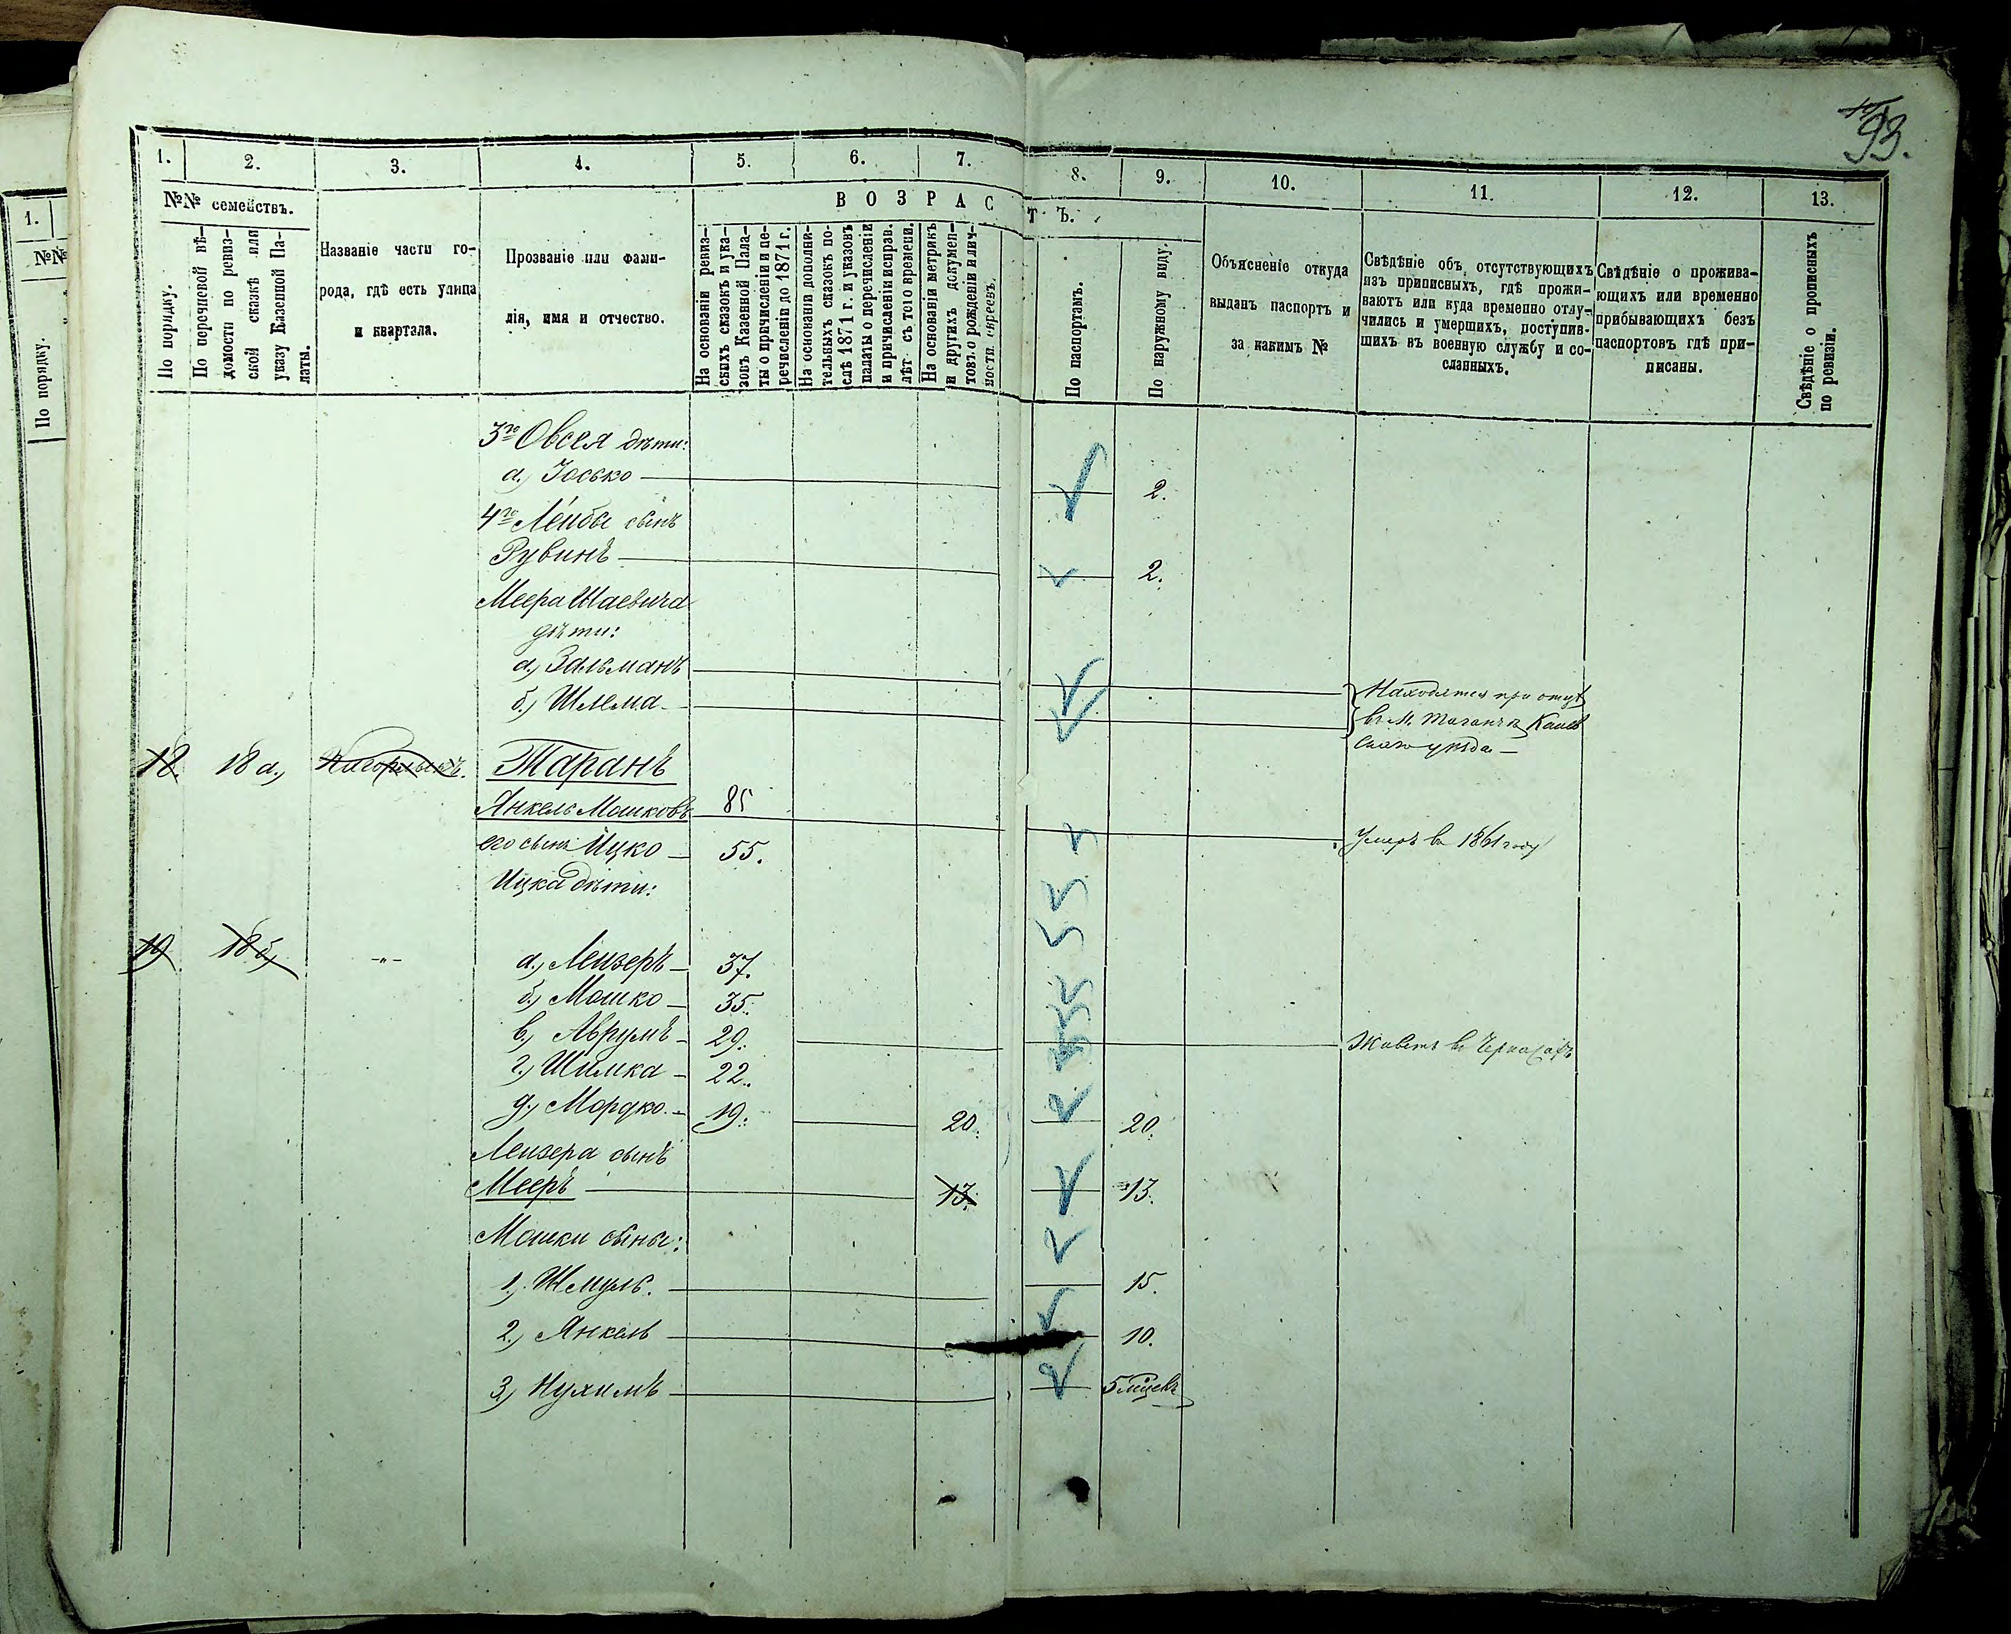 93.
1. 2. 3. 4. 5. 6. 7. 8. 9. 10. 11. 12. 13.
№№ семействъ.
По порядку.
По перечневой вѣ-
домости по ревиз-
ской сказкѣ или
указу Казенной Па-
латы.
Названіе части го-
рода, гдѣ есть улица
и квартала.
Прозваніе или фами-
лія, имя и отчество.
ВОЗРАСТЪ.
На основаніи ревиз-
скихъ сказокъ и ука-
зовъ Казенной Пала-
ты о причисленіи и пе-
речисленіи до 1871 г.
На основаніи дополни-
тельныхъ сказокъ по-
слѣ 1871 г. и указовъ
палаты о перечисленіи
и причисленіи исправ.
лѣт съ того времени.
На основаніи метрикъ
и другихъ докумен-
товъ о рожденіи и лич-
ности евреевъ.
По паспортамъ.
По наружному виду.
Объясненіе откуда
выданъ паспортъ и
за какимъ №
Свѣдѣніе объ отсутствующихъ
изъ приписныхъ, гдѣ прожи-
ваютъ или куда временно отлу-
чились и умершихъ, поступив-
шихъ въ военную службу и со-
сланныхъ.
Свѣдѣніе о прожива-
ющихъ или временно
прибывающихъ безъ
паспортовъ гдѣ при-
писаны.
Свѣдѣніе о прописныхъ
по ревизіи.
1.
№№
По порядку.
3го Овсея дѣти:
а.) Іосько 2.
4го Лейбы сынъ
Рувинъ 2.
Меера Шаевича
дѣти:
а.) Зальманъ Находятся при отцѣ
б.) Шлема въ М. Таганчѣ Канев
скаго уѣзда
18. 18 а.) Таранъ
Янкель Мошковъ 85
его сынъ Ицко 55. Умеръ въ 1861 году
Ицка дѣти:
19 18 б.) -"- а.) Лейзеръ 37.
б.) Мошко 35.
в.) Аврумъ 29. Живетъ въ Черкасахъ
г.) Шимка 22.
д.) Мордко 19. 20. 20.
Лейзера сынъ
Мееръ 13. 13.
Мошки сыны:
1.) Шмуль. 15.
2.) Янкель 10.
3.) Нухимъ 5 мѣсцевъ